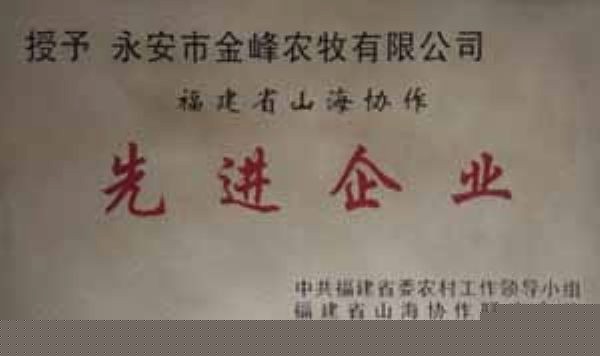 授予 永安市金峰农牧有限公司
福建省山海协作
先进企业
中共福建省委农村工作领导小组
福建省山海协作